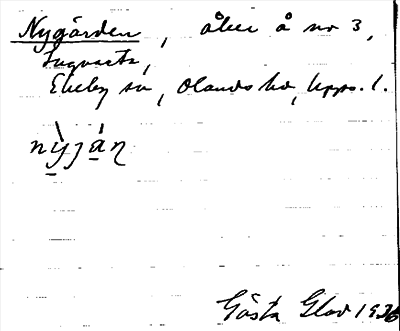 Nygården, åker å no 3,
Ingvasta,
Ekeby sn, Olands hd, Upps. l.
nỳjáɳ
Gösta Glad 1936